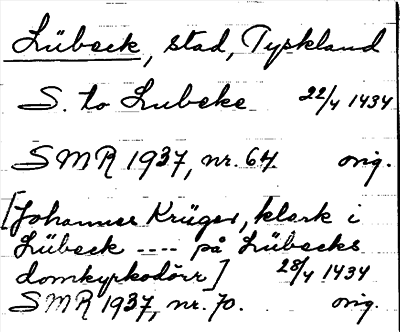 Lübeck, stad, Tyskland
S. to Lubeke 22/4 1434
SMR 1937, nr. 64. orig.
[Johannes Krüger, klerk i
Lübeck ---- på Lübecks
domkyrkodörr] 28/4 1434
SMR 1937, nr. 70. orig.